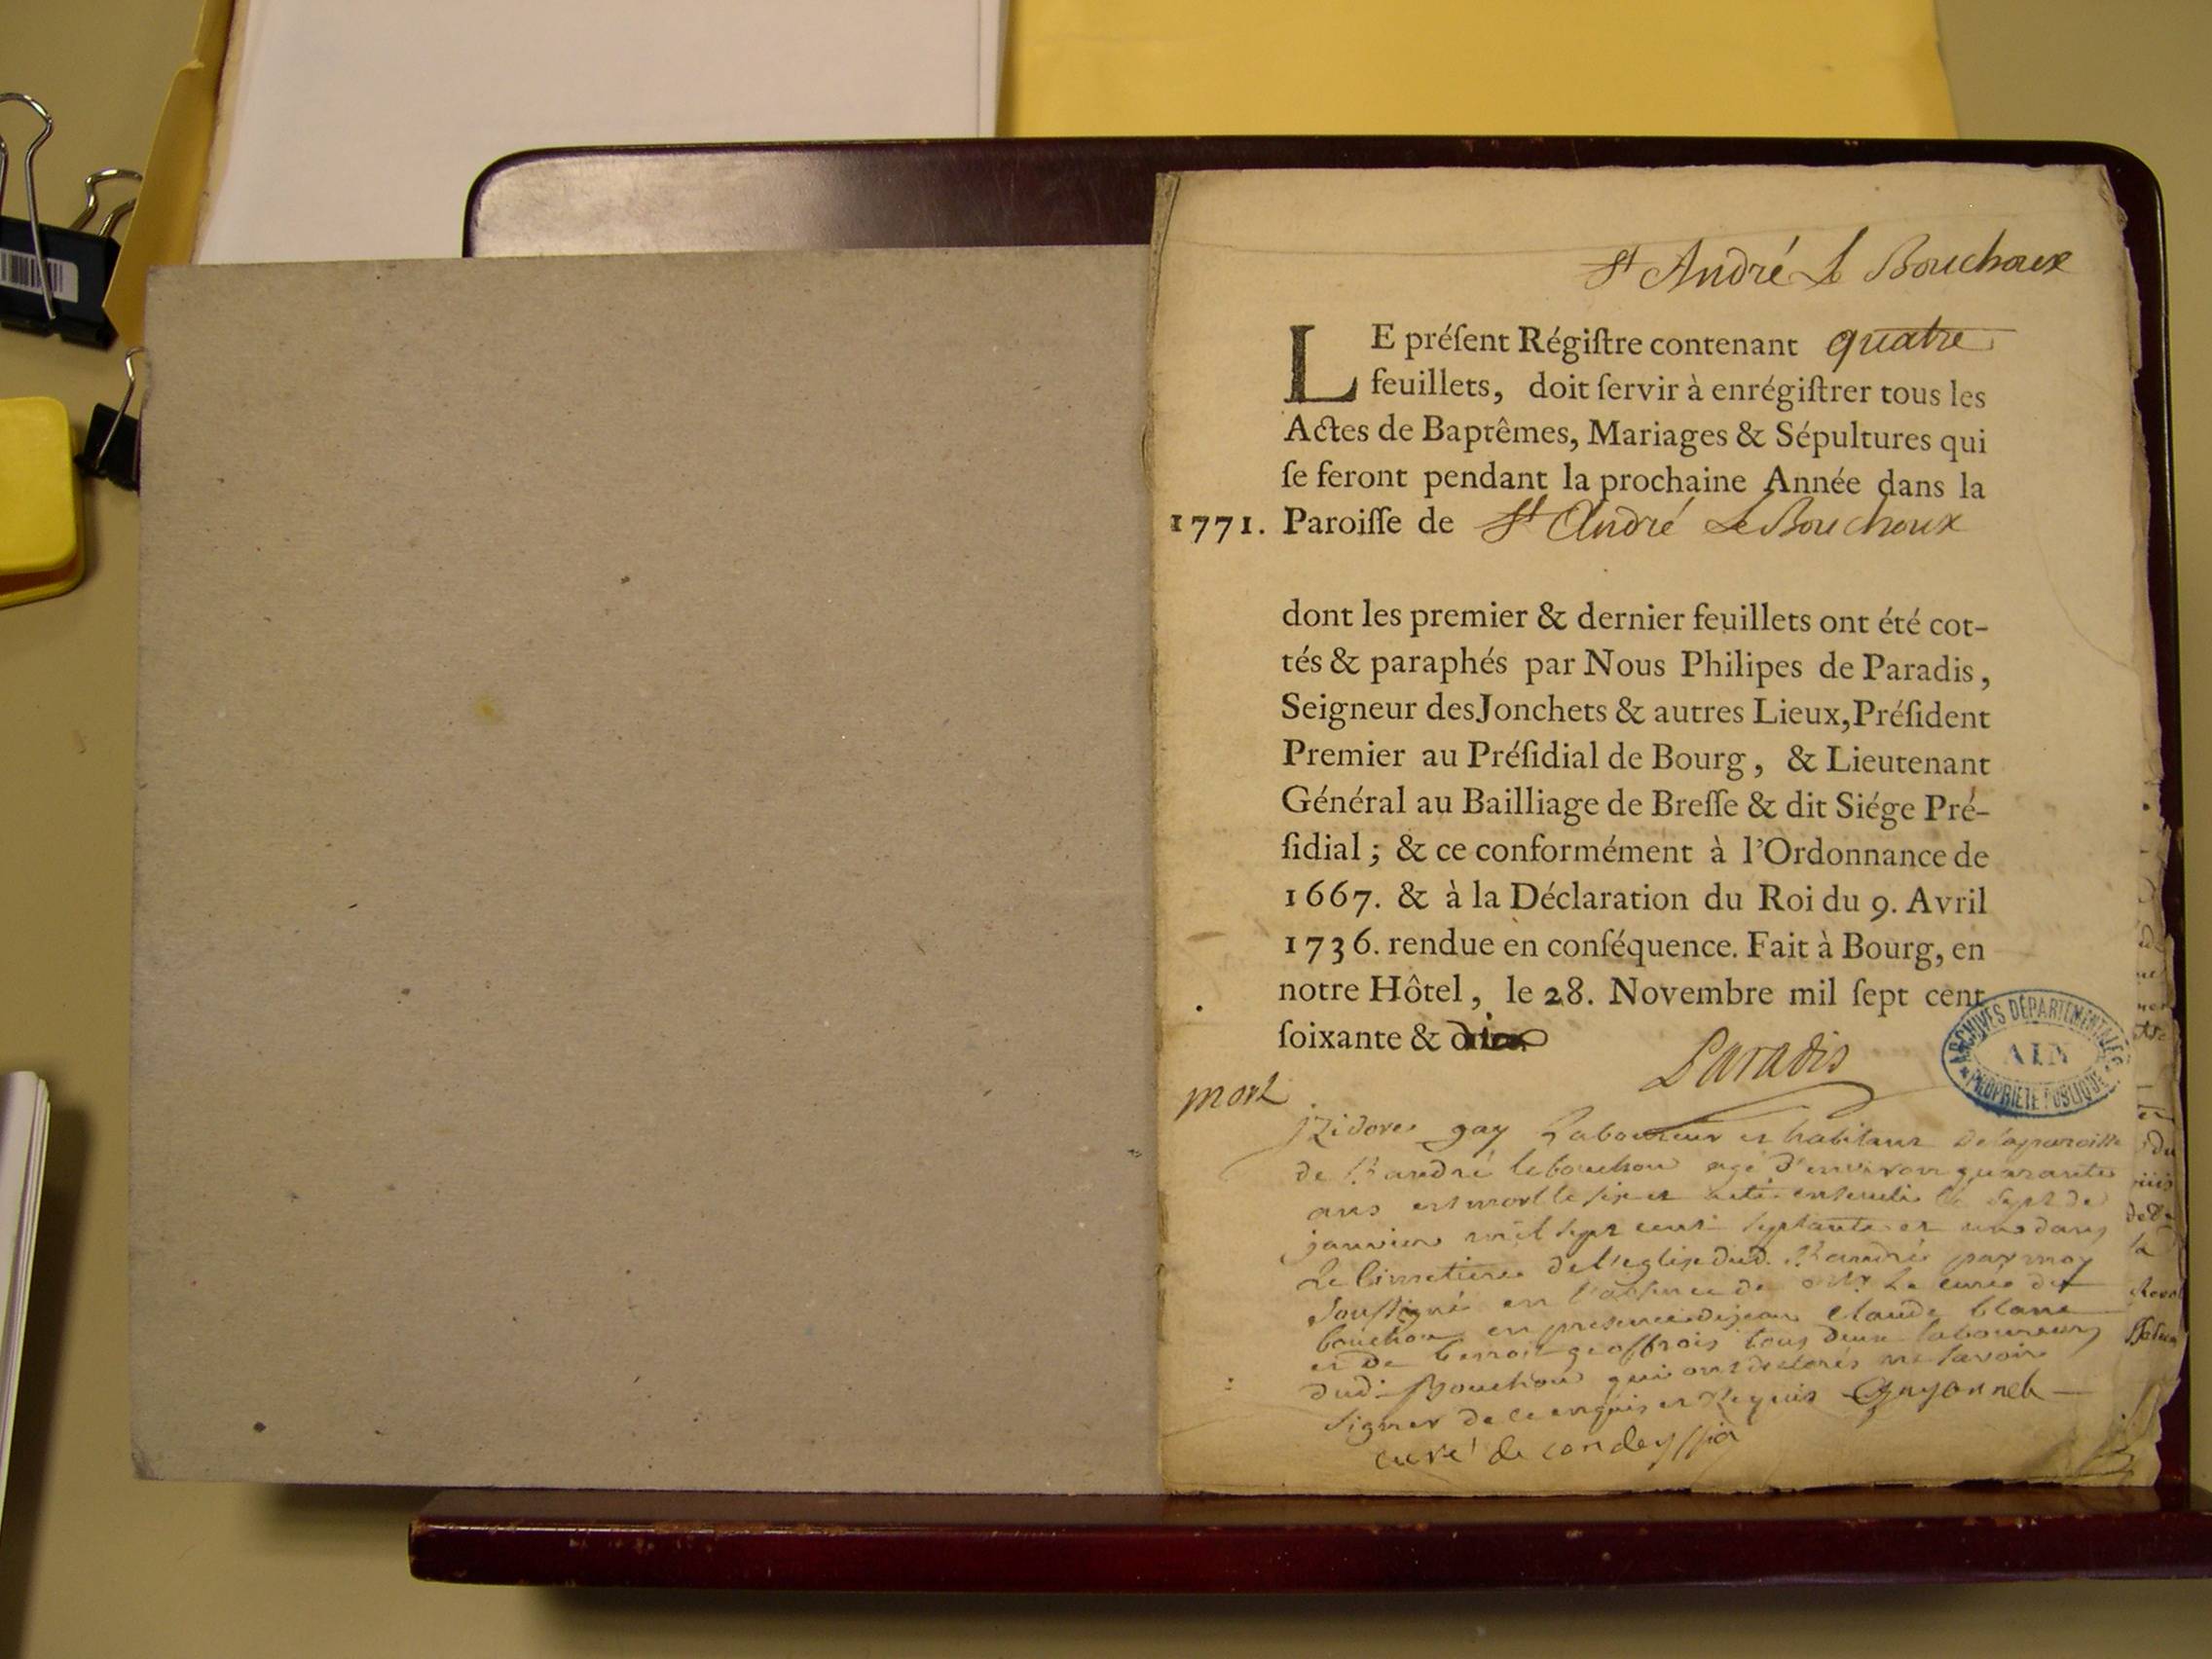 St André Le Bouchoux
LE préſent Régiſtre contenant quatre
feuillets, doit ſervir à enrégiſtrer tous les
Actes de Baptêmes, Mariages & Sépultures qui
ſe feront pendant la prochaine Année dans la
1771. Paroiſſe de St André Le Bouchoux
dont les premier & dernier feuillets ont été cot-
tés & paraphés par Nous Philipes de Paradis,
Seigneur des Jonchets & autres Lieux, Préſident
Premier au Préſidial de Bourg, & Lieutenant
Général au Bailliage de Breſſe & dit Siége Pré-
ſidial; & ce conformément à l'Ordonnance de
1667. & à la Déclaration du Roi du 9. Avril
1736. rendue en conſéquence. Fait à Bourg, en
notre Hôtel, le 28. Novembre mil ſept cent
ſoixante & dix
Paradis
ARCHIVES DÉPARTEMENTALES
AIN
PROPRIÉTÉ PUBLIQUE
mort
jzidore gay Laboureur et habitant de la paroisse
de St andré le bouchou agé d'environ quarante
ans est mort le six et a été enseveli le sept de
janvier mil sept cent septante et un dans
Le Cimetiere de l'eglise dud. St andré par moy
soussigné en l'absence de Mr Le curé du
bouchou en presence de jean Claude blanc
et de benoit geoffrois tous deux laboureurs
dud. Bouchou qui ont declarés ne savoir
signer de ce enquis et Requis Guyonnet
curé de condeyssia